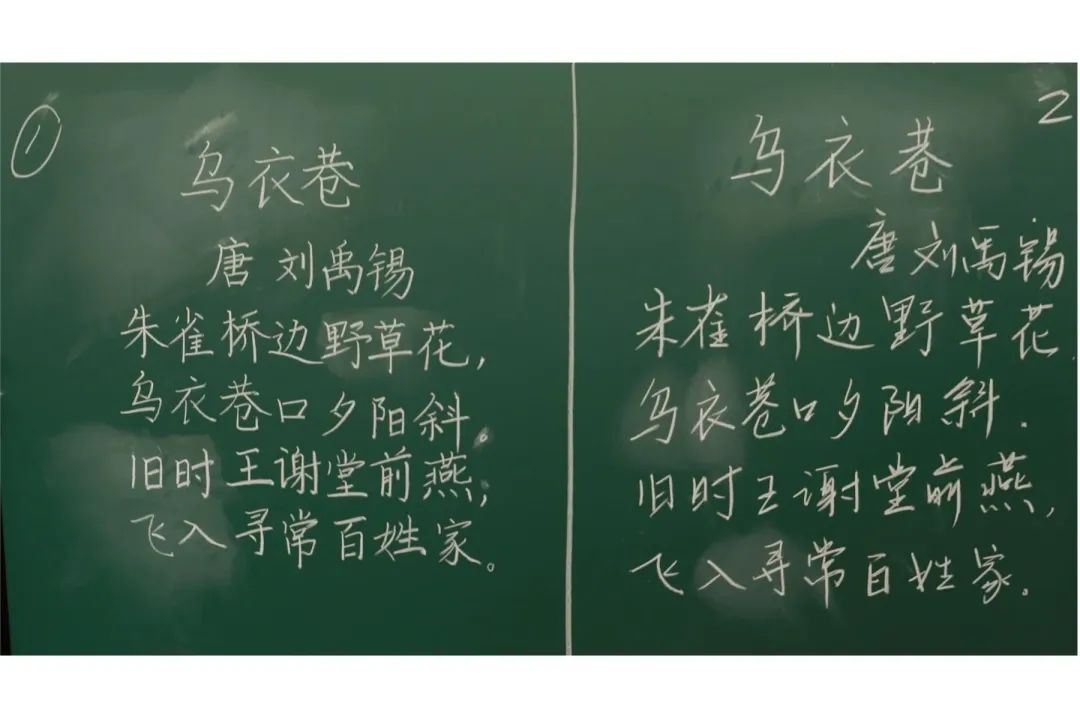 ①
乌衣巷
唐 刘禹锡
朱雀桥边野草花,
乌衣巷口夕阳斜。
旧时王谢堂前燕,
飞入寻常百姓家。
2
乌衣巷
唐刘禹锡
朱雀桥边野草花
乌衣巷口夕阳斜.
旧时王谢堂前燕,
飞入寻常百姓家.